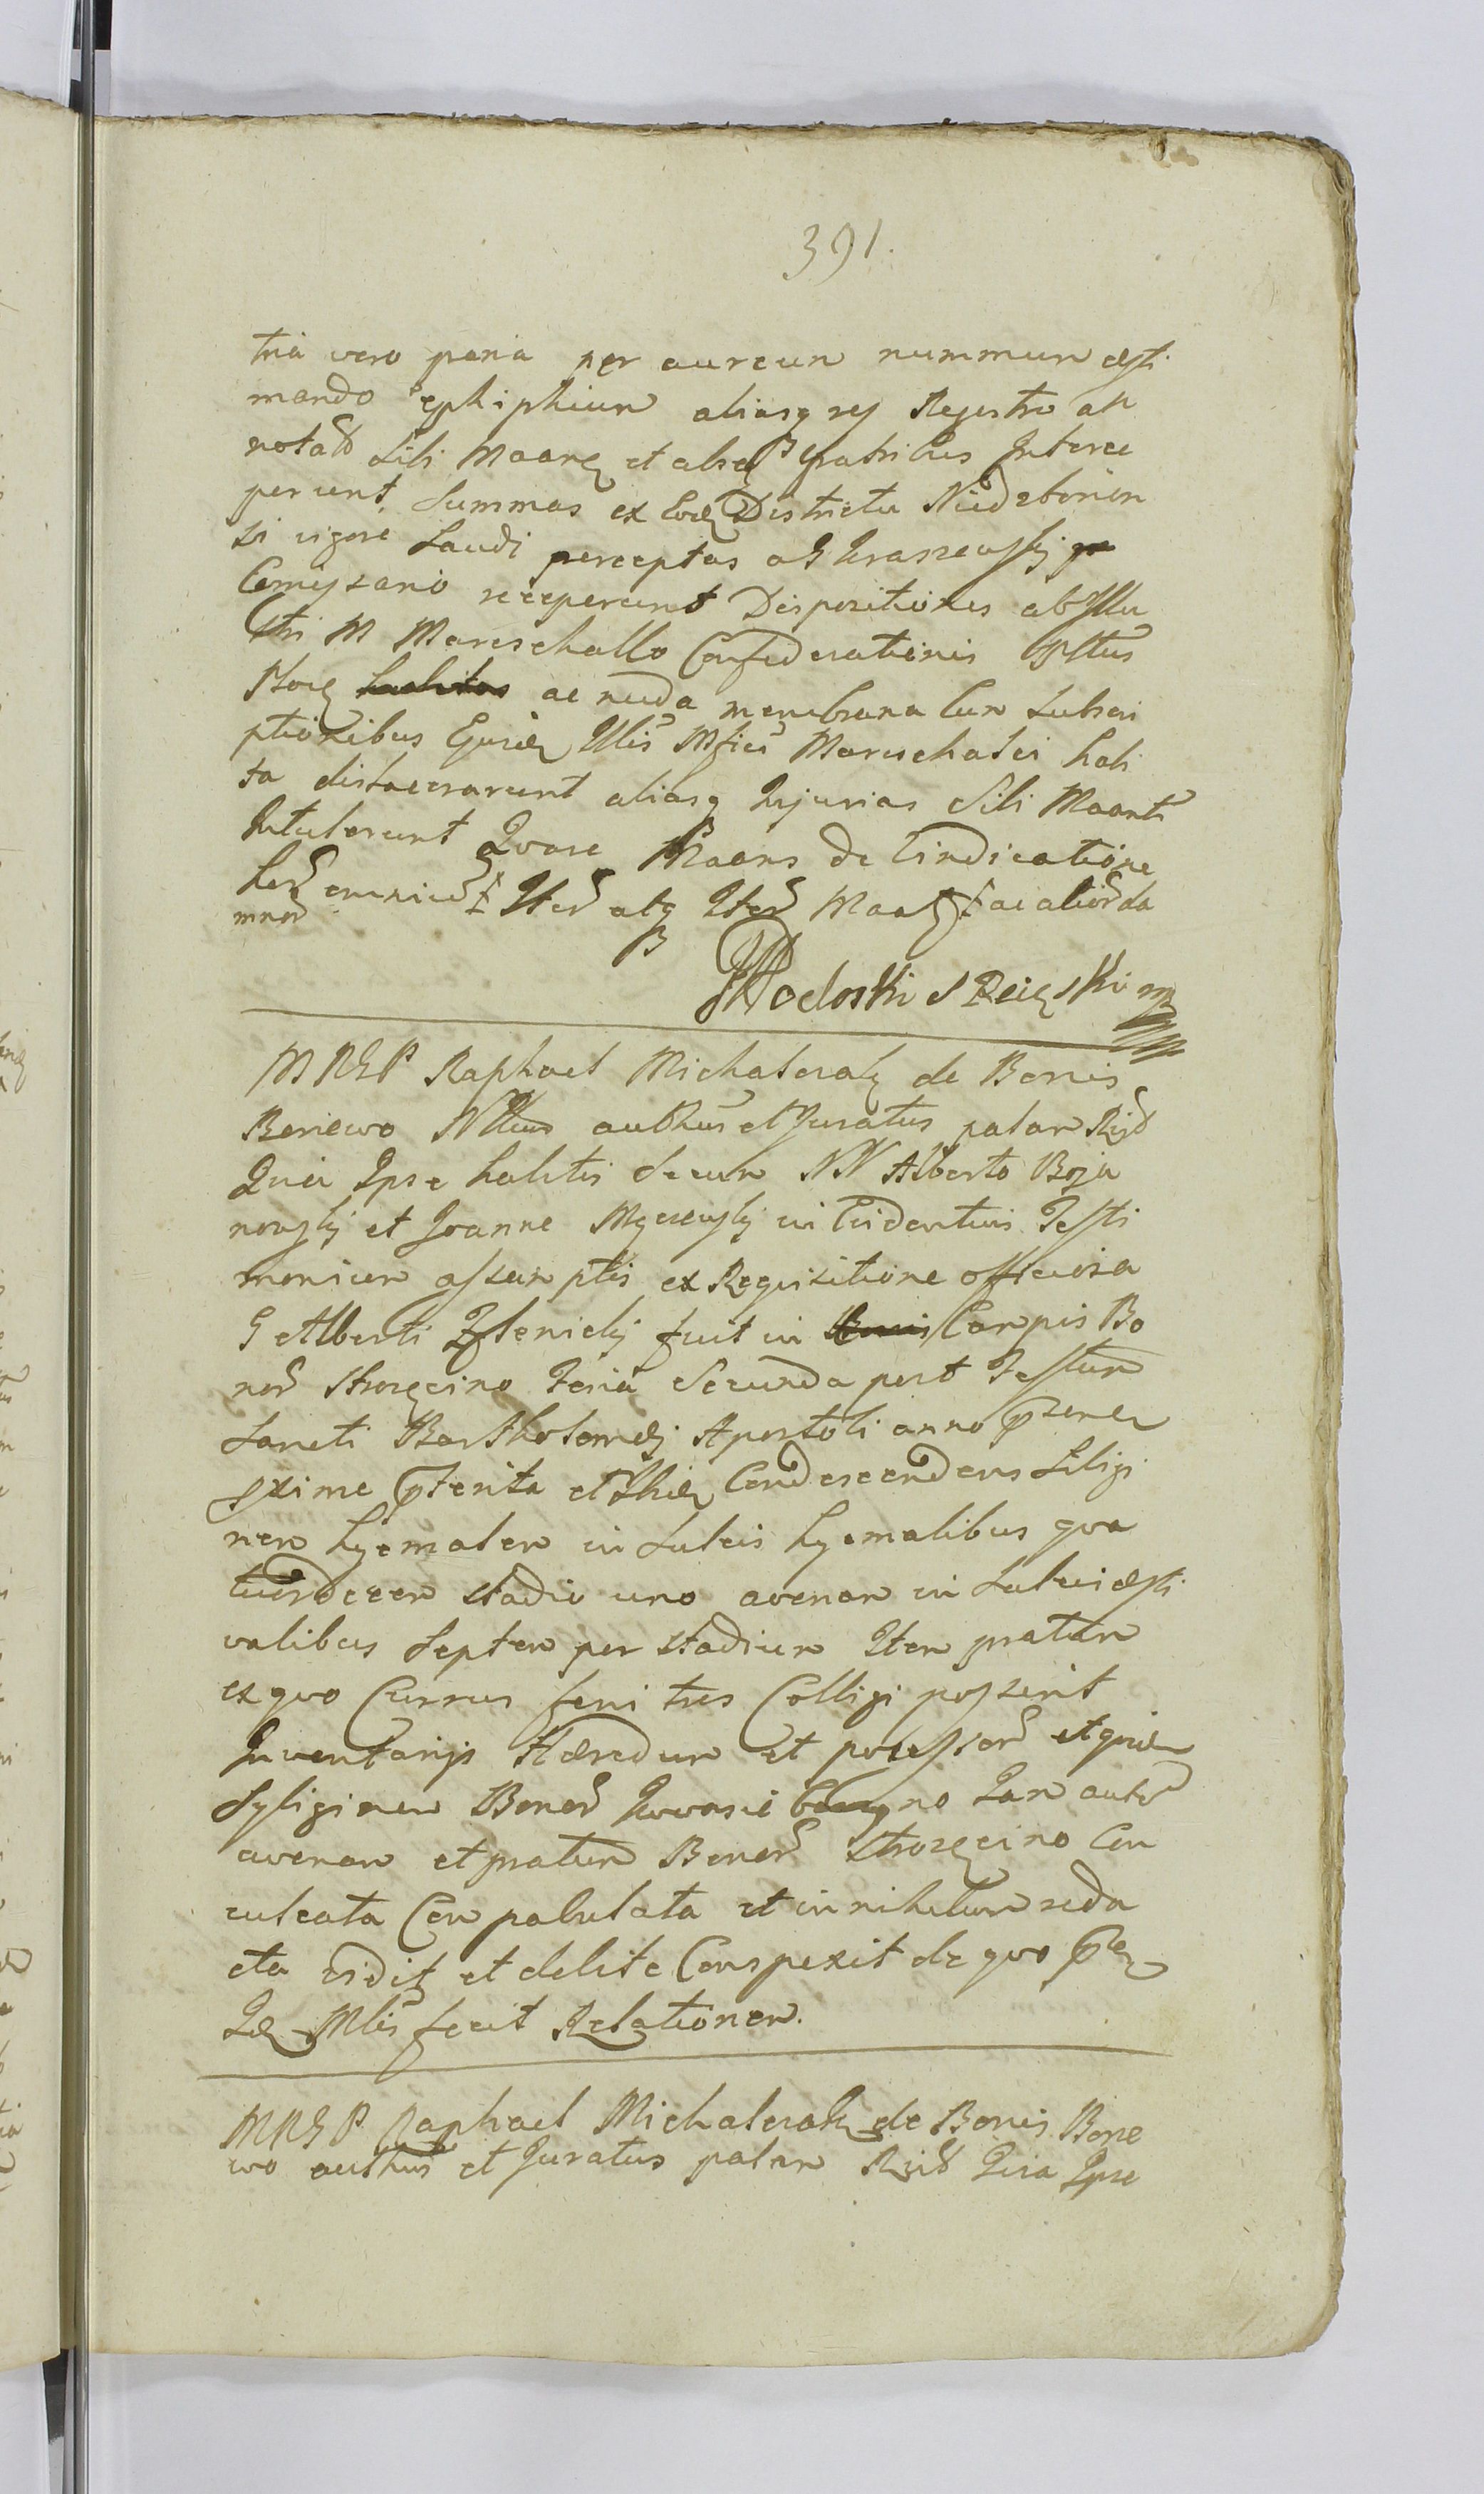 391.
tria vero paria per aureum nummum æsti
mando ephiphium aliasq res Regestro an
notatas sibi Maanti et alias Fratribus Interce
perunt, summas ex Eodem Districtu Niedzborien
si vigore Laudi perceptas a G Kraszewskij
Comissario receperunt Dispositiones ab Illu
stri M Mareschallo Confederationis Ipstus
ac nuda membrana cum subscri
ptionibus Ejusdem Illis Mfici Mareschalci habi
ta dislacerarunt aliasq Injurias Sibi Maanti
Intulerunt Quare Maans de vindicatione
Itera atq Itera ac alior da
mnor
Podoski S Rożski mp
M R G P Raphael Michalczak de Bonis
Boniewo Mlis authus et Juratus palam Rgt
Quia Ipse habitis secum NN Alberto Boja
nowskij et Joanne Mycewskij in Evidentius Testi
monium assumptis ex Requisitione officiosa
G Alberti Zglenickij fuit in Campis Bo
nor Strozęcino Feria Secunda post Festum
Sancti Bartholomæj Apostoli anno præsenti
pxime præterita et Ibidem Condescendens Siligi
nem hyemalem in sulcis hyemalibus qua
tuordecem stadio uno avenam in sulcis æsti
valibus septem per stadium Item pratum
ex quo Currus feni tres Colligi possent
Inventarijs Hæredum et possessor et quidem
Syliginem Bonor Kowasie no Jam autem
avenam et pratum Bonor Strozęcino Con
culcata Con pabulata et in nihilum reda
cta vidit et debite Conspexit de quo præ
Idem Mlis fecit Relationem.
M R G P Raphael Michalczak de Bonis Bonie
wo authus et Juratus palam Rgt Quia Ipse